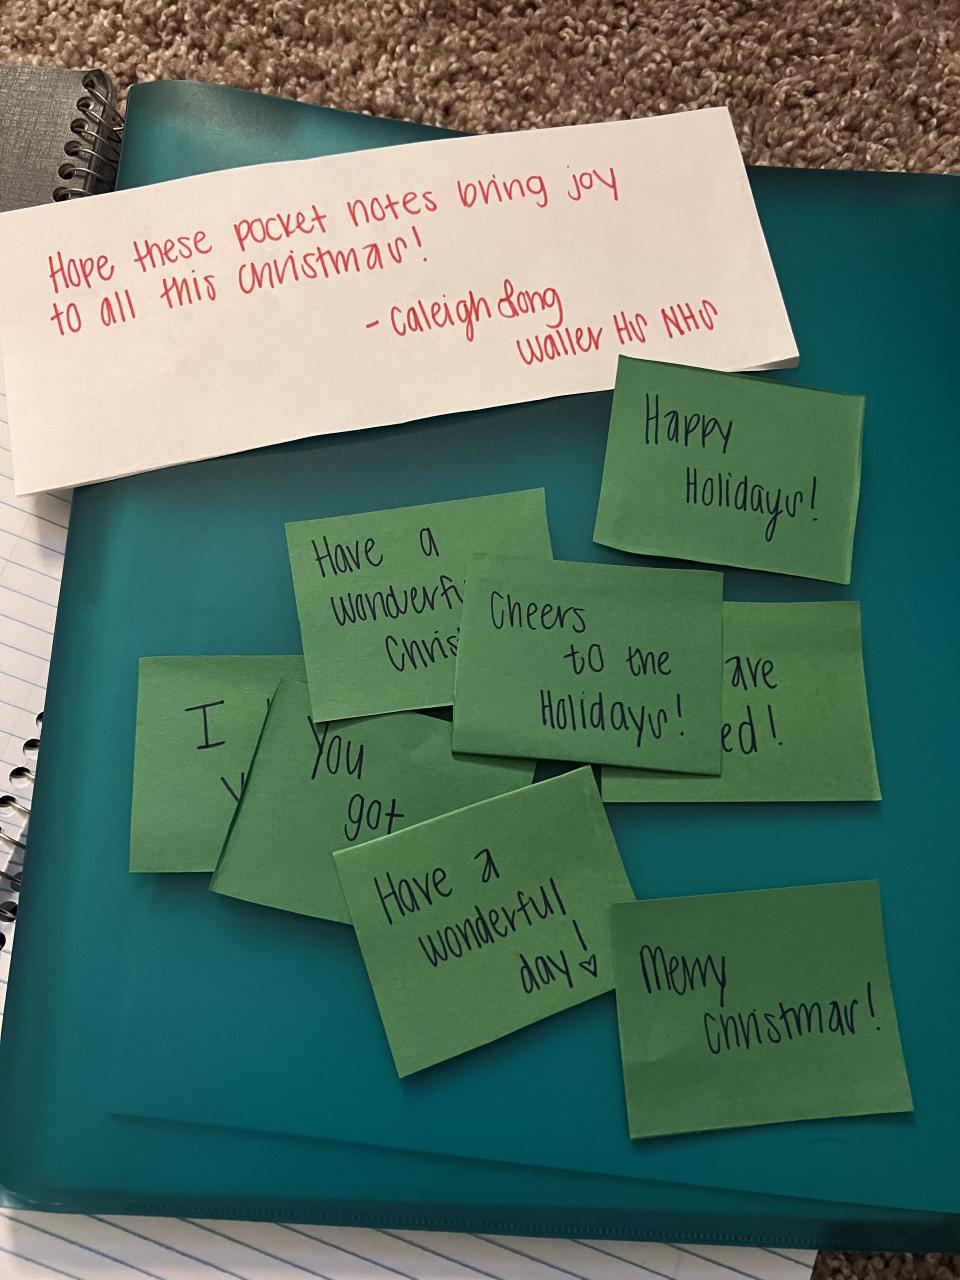 Hope these pocket notes bring joy
to all this Christmas!
- Caleigh Long
Waller HS NHS
Happy
Holidays!
Have a
Cheers
to the
Holidays!
I
You
got
Have a
wonderful
day!
Merry
Christmas!